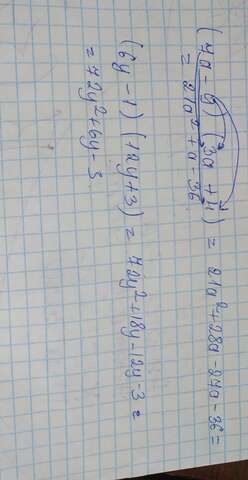 (7a - 9) (3a + 4) = 21a² + 28a - 27a - 36 =
= 21a² + a - 36
(6y - 1) (12y + 3) = 72y² + 18y - 12y - 3 =
= 72y² + 6y - 3